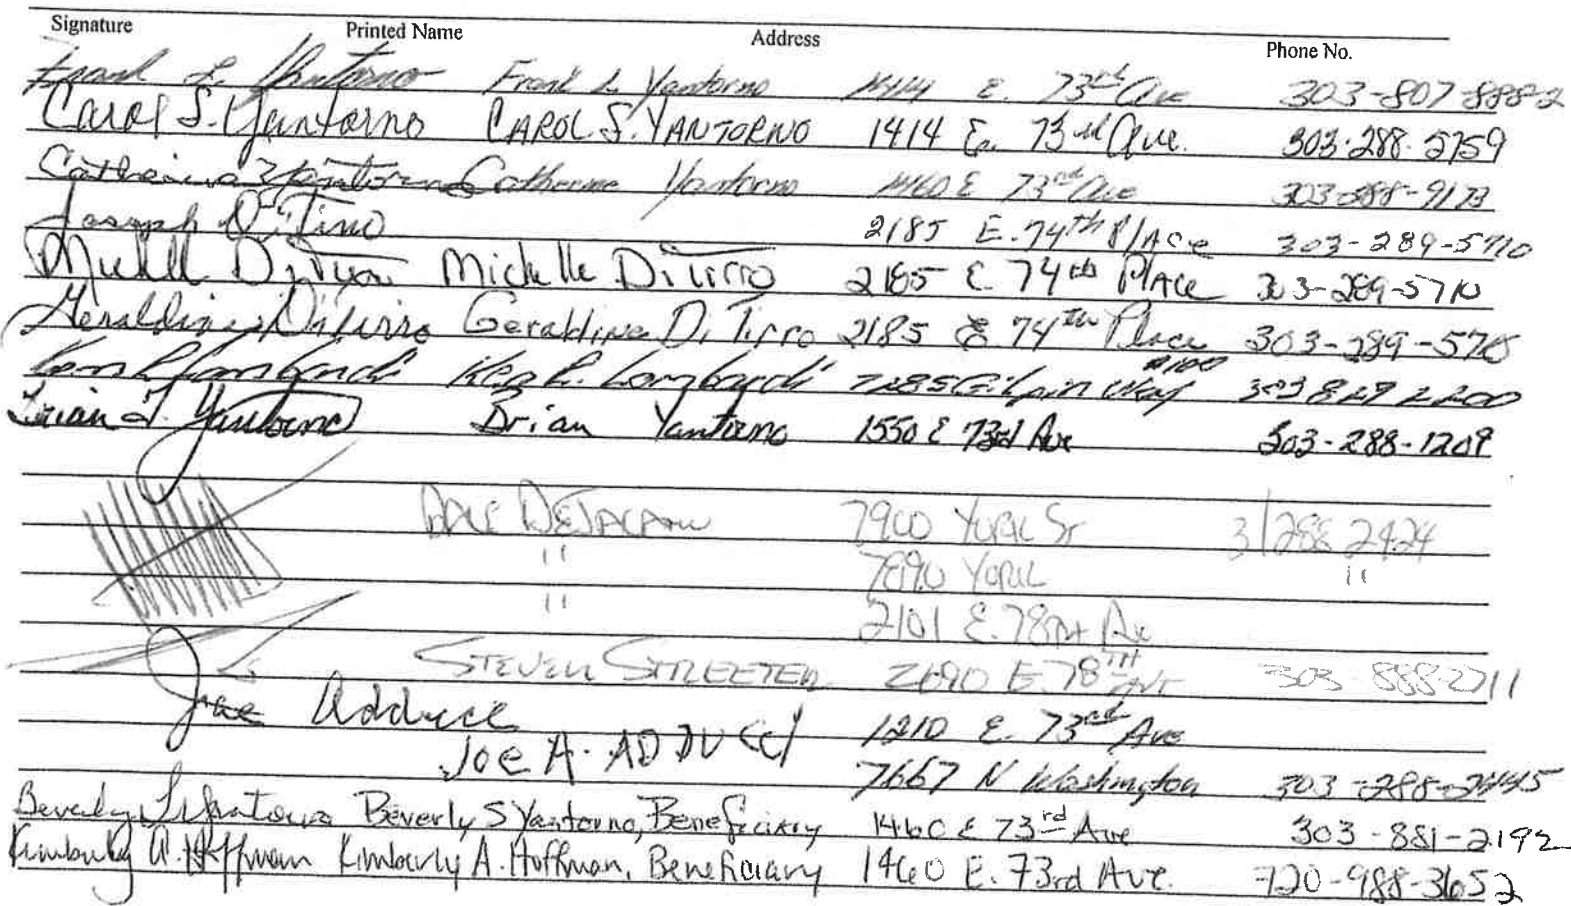 Signature Printed Name Address Phone No.
Frank L. Yantorno Frank L Yantorno 1414 E. 73rd Ave 303-807-8882
Carol S. Yantorno CAROL S. YANTORNO 1414 E. 73rd Ave. 303-288-5759
Catherine Yantorno Catherine Yantorno 1460 E 73rd Ave 303-288-9173
Joseph DiTirro 2185 E. 74th PlAce 303-289-5710
Michelle DiTirro Michelle DiTirro 2185 E. 74th PlAce 303-289-5710
Geraldine DiTirro Geraldine DiTirro 2185 E 74th Place 303-289-5710
Ken R Lombardi Ken R. Lombardi 7285 Gilpin Way #100 303 829 2200
Brian T. Yantorno Brian Yantorno 1550 E 73rd Ave 303-288-1209
7900 York St 3/288 2424
" 7890 York "
" 2101 E. 78th Av
STEVEN STREETER 2690 E. 78TH AVE 303-888-2711
Joe Adducci 1210 E. 73rd Ave
Joe A. ADDUCCI 7667 N Washington 303-288-2445
Beverly S Yantorno Beverly S Yantorno, Beneficiary 1460 E 73rd Ave 303-881-2192
Kimberly A. Hoffman Kimberly A. Hoffman, Beneficiary 1460 E. 73rd Ave. 720-988-3652